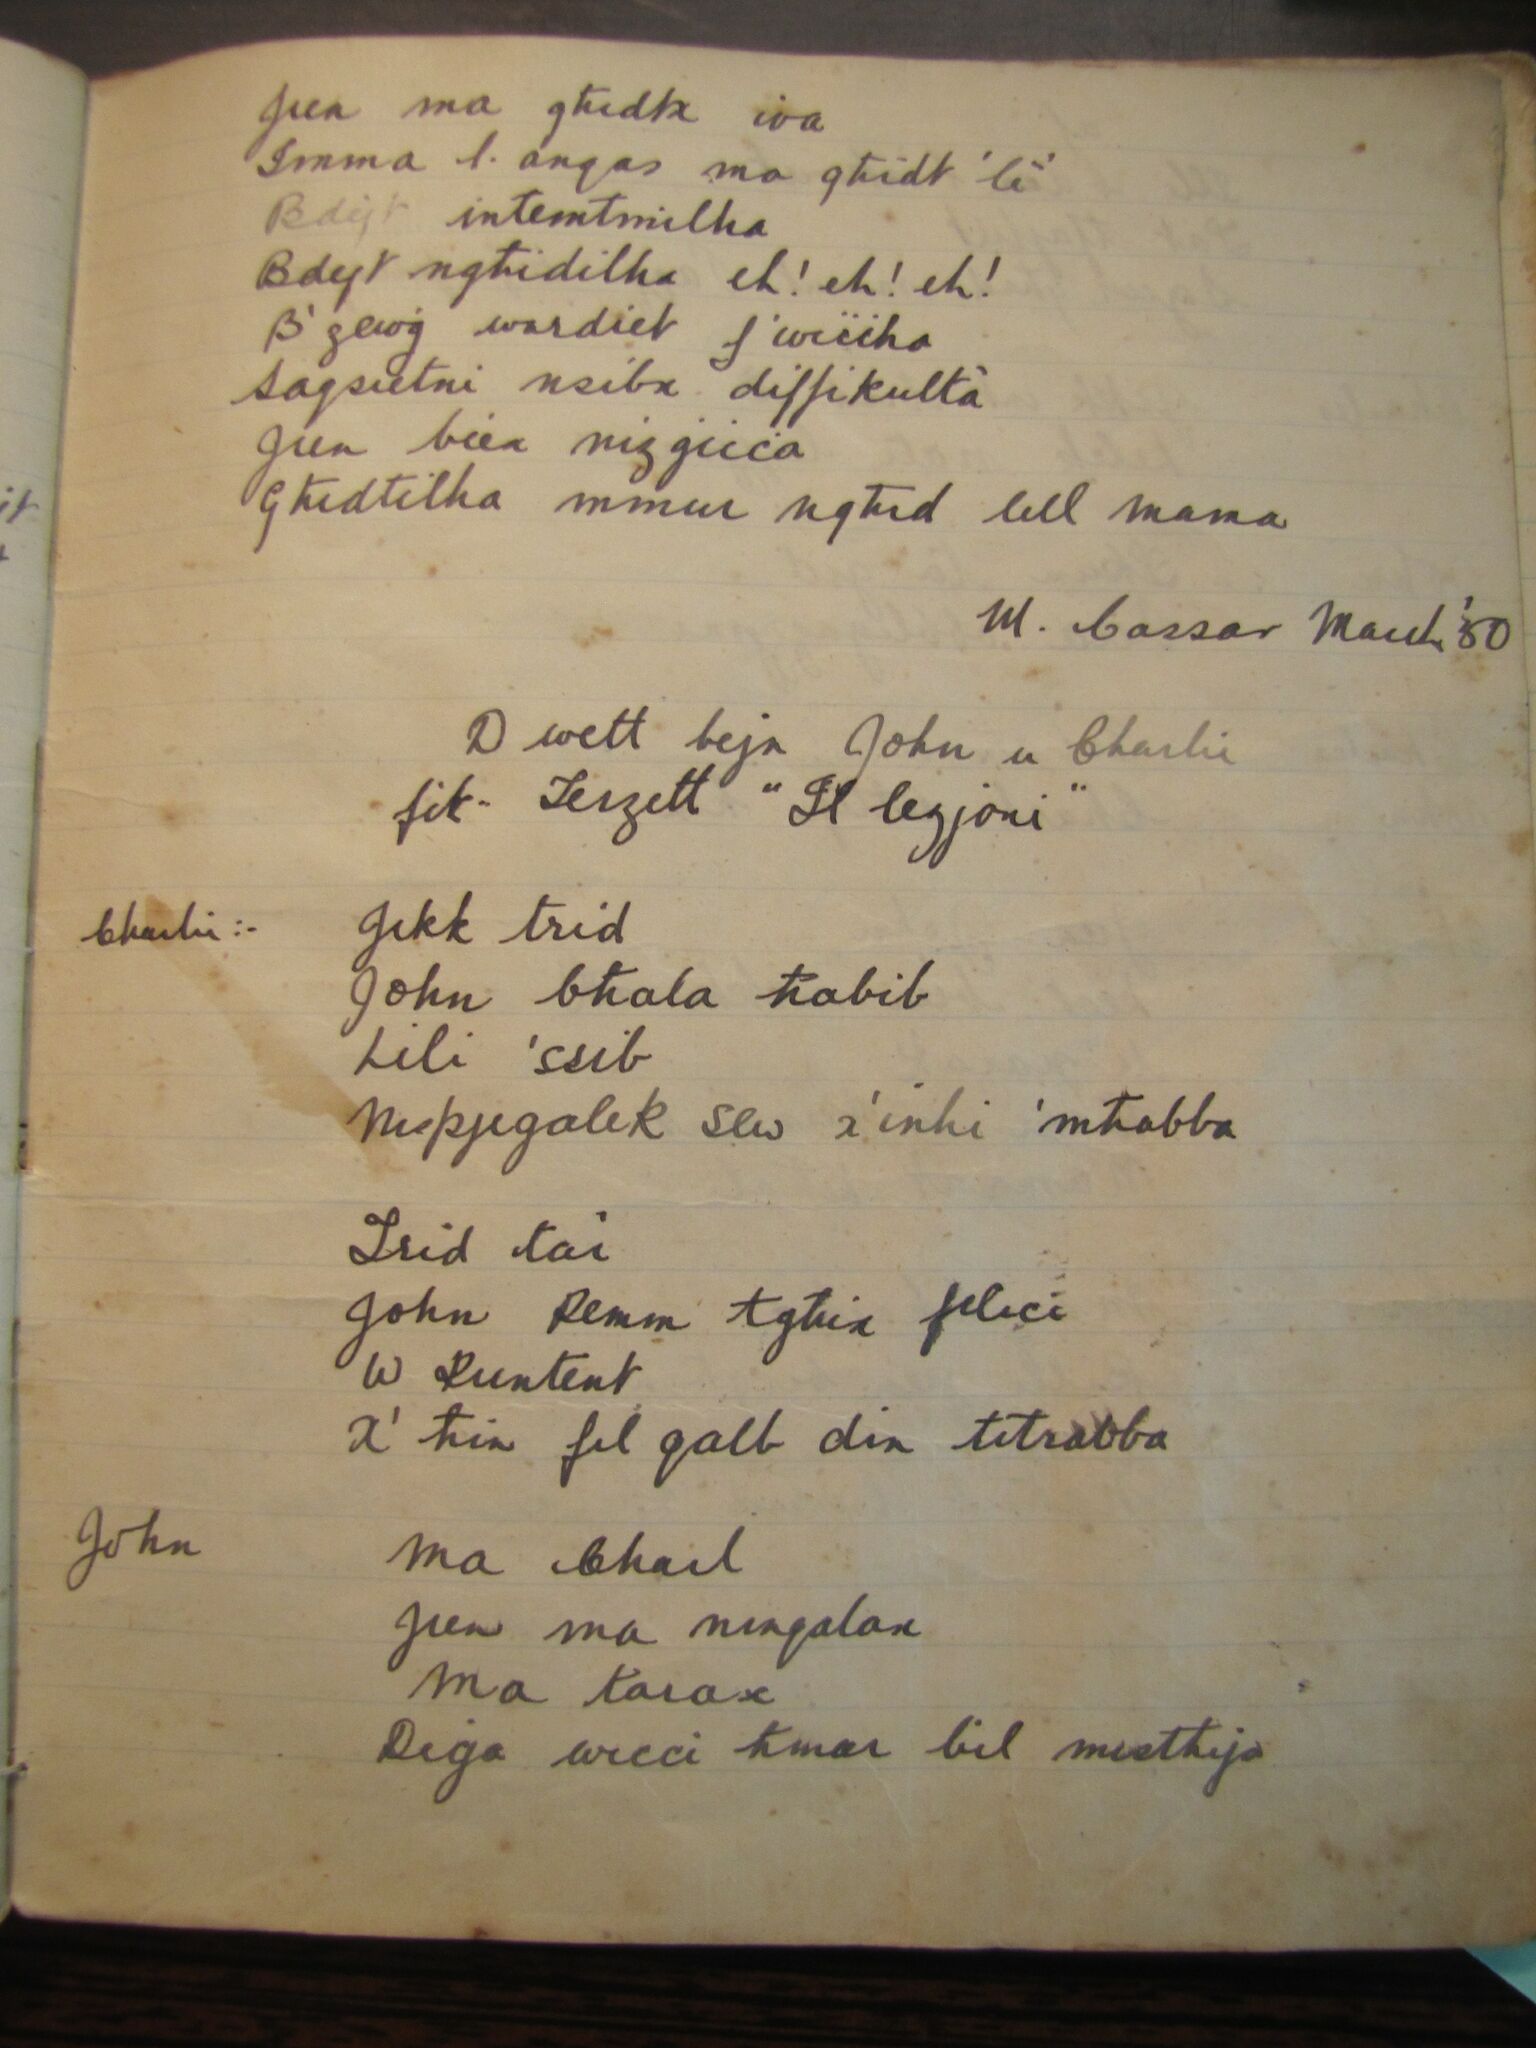 Jien ma għedtx iva
Imma l. anqas ma għidt 'le'
Bdejt intemtmilha
Bdejt ngħidilha eh! eh! eh!
B'żewġ wardiet f'wiċċha
Saqsietni nsibx diffikultà
Jien biex niżġiċċa
Għedtilha mmur ngħid lell mama
M. Cassar March '50
Dwett bejn John u Charlie
fit- Terzett "Il legjoni"
Charlie :- Jekk trid
John bħala ħabib
Lili 'ssib
Nispjegalek sew x'inhi 'mħabba
Trid taf
John kemm tgħix feliċi
U kuntent
X'ħin fil qalb din titrabba
John Ma Charl
jien ma ninqalax
Ma tarax
Diga wiċċi ħmar bil mistħija